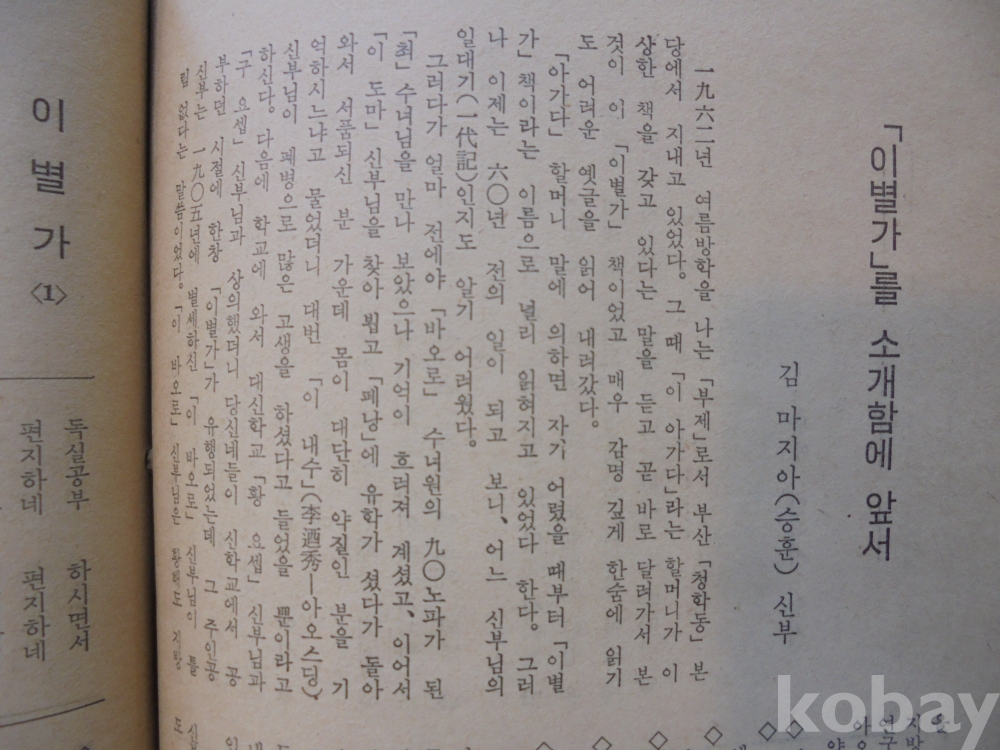 「이별가」를 소개함에 앞서
김 마지아(승훈) 신부
一九六二년 여름방학을 나는 「부제」로서 부산 「청학동」 본
당에서 지내고 있었다. 그 때 「이 아가다」라는 할머니가 이
상한 책을 갖고 있다는 말을 듣고 곧 바로 달려가서 본
것이 이 「이별가」 책이었고 매우 감명 깊게 한숨에 읽기
도 어려운 옛글을 읽어 내려갔다.
「아가다」 할머니 말에 의하면 자기 어렸을 때부터 「이별
가」 책이라는 이름으로 널리 읽혀지고 있었다 한다. 그러
나 이제는 六〇년 전의 일이 되고 보니, 어느 신부님의
일대기(一代記)인지도 알기 어려웠다.
그러다가 얼마 전에야 「바오로」 수녀원의 九〇노파가 된
「최」 수녀님을 만나 보았으나 기억이 흐려져 계셨고, 이어서
「이 도마」 신부님을 찾아 뵙고 「페낭」에 유학가 셨다가 돌아
와서 서품되신 분 가운데 몸이 대단히 약질인 분을 기
억하시느냐고 물었더니 대번 「이 내수」(李迺秀—아오스딩)
신부님이 폐병으로 많은 고생을 하셨다고 들었을 뿐이라고
하신다. 다음에 학교에 와서 대신학교 「황 요셉」 신부님과
「구 요셉」 신부님과 상의했더니 당신네들이 신학교에서 공
부하던 시절에 한창 「이별가」가 유행되었는데 그 주인공
신부는 一九〇五년에 별세하신 「이 바오로」 신부님이 틀
림 없다는 말씀이었다. 「이 바오로」 신부님은 황해도
이별가 〈1〉
독실공부 하시면서
편지하네 편지하네
kobay